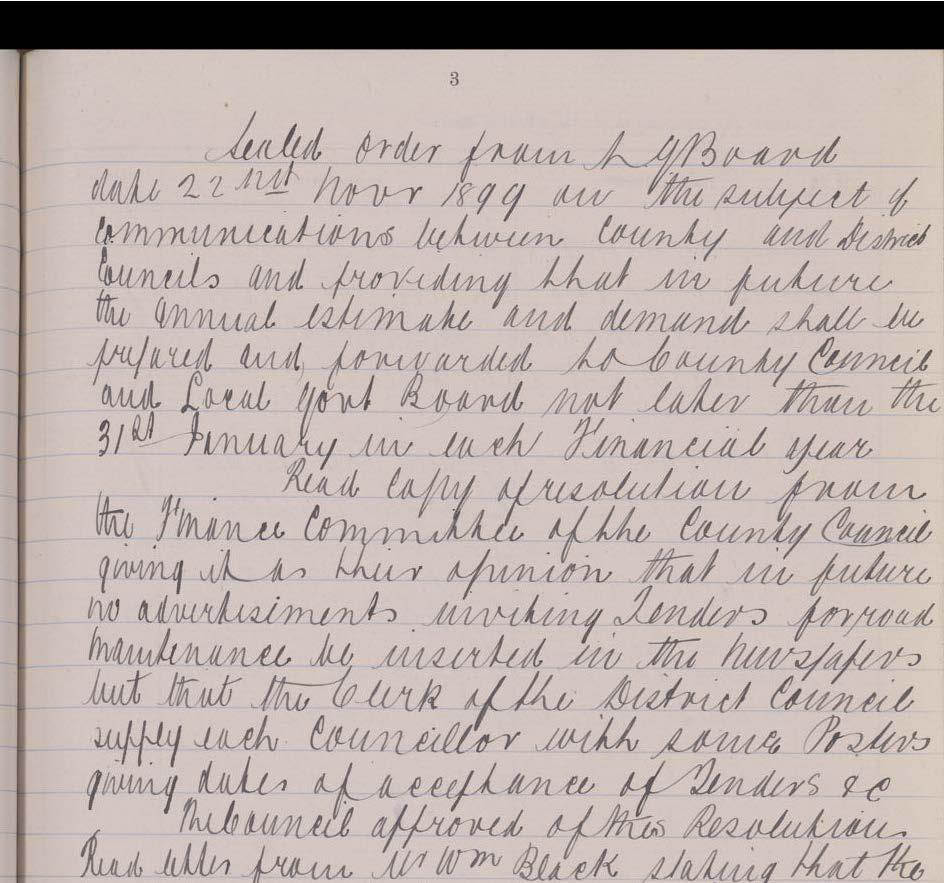 3
Sealed order from L G Board
date 22nd Novr 1899 on the subject of
communications between County and District
Councils and providing that in future
the annual estimate and demand shall be
prepared and forwarded to County Council
and Local Govt Board not later than the
31st January in each Financial year
Read copy of resolution from
the Finance Committee of the County Council
giving it as their opinion that in future
no advertisiments inviting Tenders for road
maintenance be inserted in the Newspapers
but that the Clerk of the District Council
supply each Councillor with some Posters
giving dates of acceptance of Tenders &c
The Council approved of this Resolution
Read letter from Mr Wm Black stating that the